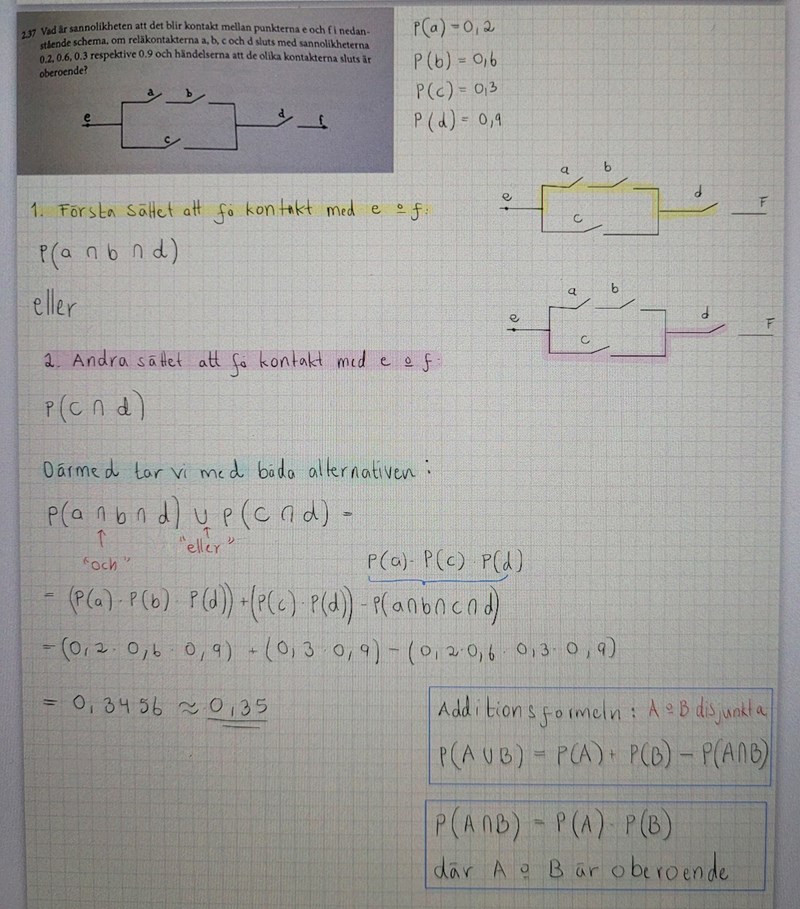 2.37 Vad är sannolikheten att det blir kontakt mellan punkterna e och f i nedan-
stående schema, om reläkontakterna a, b, c och d sluts med sannolikheterna
0.2, 0.6, 0.3 respektive 0.9 och händelserna att de olika kontakterna sluts är
oberoende?
a b
e d f
c
P(a) = 0,2
P(b) = 0,6
P(c) = 0,3
P(d) = 0,9
a b
e d F
c
1. Första sättet att få kontakt med e o f:
P(a ∩ b ∩ d)
eller
a b
e d F
c
2. Andra sättet att få kontakt med e o f:
P(c ∩ d)
Därmed tar vi med båda alternativen:
P(a ∩ b ∩ d) ∪ P(c ∩ d) =
↑ ↑
"och" "eller"
P(a) · P(c) · P(d)
= (P(a) · P(b) · P(d)) + (P(c) · P(d)) - P(a∩b∩c∩d)
= (0,2 · 0,6 · 0,9) + (0,3 · 0,9) - (0,2·0,6 · 0,3 · 0,9)
= 0,3456 ≈ 0,35
Additionsformeln: A o B disjunkta
P(A ∪ B) = P(A) + P(B) - P(A∩B)
P(A∩B) = P(A) · P(B)
där A o B är oberoende